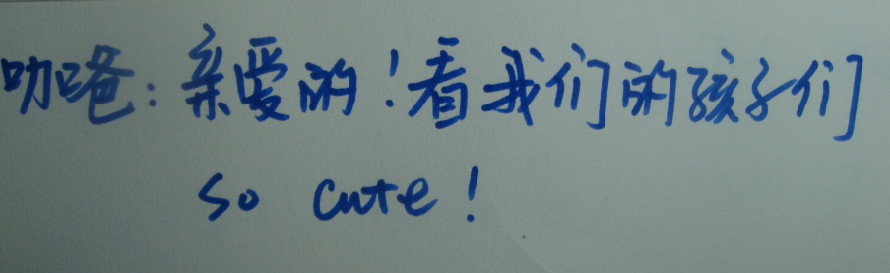 叻爸:亲爱的!看我们的孩子们
so cute!